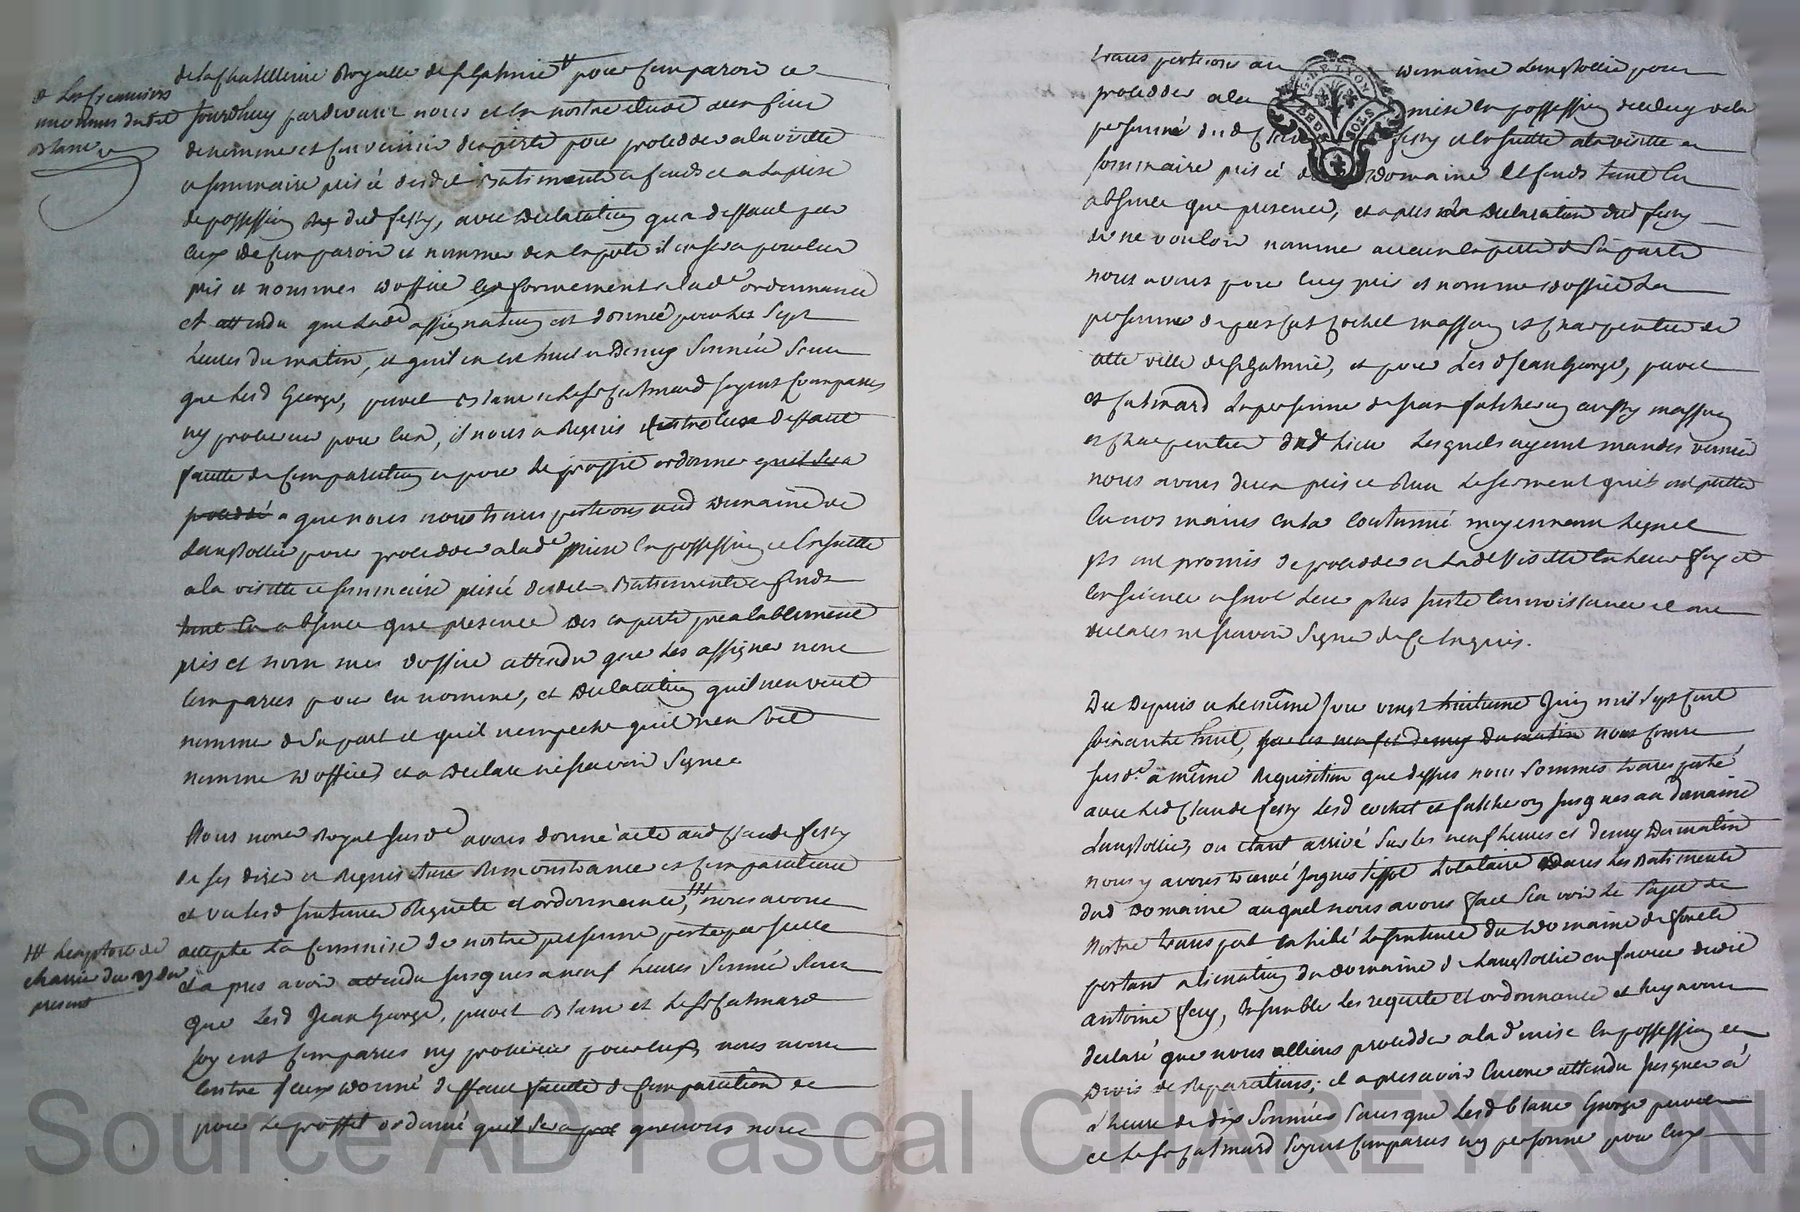 de la Chatellenie Royalle de St Chamie # pour Comparoir ce
# les Creanciers
inconnus dudt
Blanc
Jourdhuy pardevant nous et en nostre etude aux fins
de nommer et Convenir dexperts pour proceder a la visitte
et sommaire prisé desdts Batiments et fonds et a la prise
de possession dud fessy, avec Declaration qua deffaut par
Eux de Comparoir et nommer des experts il en sera pour Eux
pris et nommes doffice Conformement a lade ordonnance
et attendu que lade assignation est donnée pour les Sept
heures du matin, et quil en est huit et Demy Sonnée Sans
que lesd George, puvel Blanc et le Sr Catmard soyent Comparus
ny procureur pour Eux, il nous a Requis Contre Eux deffaut
faute de Comparution et pour le proffit ordonner quil sera
procedé a que nous nous transporterons aud Domaine de
Langollie pour proceder a lade prise En possession et Ensuitte
a la visitte et sommaire prisé desdts Batiments et fonds
tant En absence que presence Des experts prealablement
pris et nommes doffice attendu que les assignes nont
Comparus pour En nommer, et Declaration quil nen veut
nommer de Sa part et quil nempeche quil nen soit
nomme doffice et a Declare ne scavoir Signer
Nous notre Royal susde avons donné acte aud Claude fessy
de ses dire et Requisitions Remontrance et Comparution
et vu lesd sentence Requete et ordonnance, ### nous avons
### lexploit de
charrin du 27 du
present
accepte la Commise de nostre personne portée par icelle
Et apres avoir attendu Jusques a neuf heures Sonnée Sans
que lesd Jean George, puvel Blanc et le Sr Catmard
soyent Comparus ny procureur pour Eux nous avons
Contre Eux donné deffaut faute de Comparution et
pour le proffit ordonné quil sera que nous nous
transporterons au Domaine Langollie pour
GEN. DE LYON
DEUX SOLS
proceder a la mise En possession de la
personne dud Claude fessy et Ensuitte a la visitte et
sommaire prisé du Domaine Et fonds tant En
absence que presence, et apres la Declaration dud fessy
de ne vouloir nommer aucun Expert de Sa part
nous avons pour luy pris et nomme doffice La
personne de Cochet masson et Charpentier de
cette ville de St Chamie, et pour les d Jean George, puvel
et Catmard la personne de Jean fulcheron aussy masson
et Charpentier dud lieu lesquels ayent mandes venir
nous avons deux pris et Recu le serment quils ont prette
En nos mains En la Coutumé moyennant lequel
ils ont promis de proceder a lade visitte En leur foy et
Conscience et suivt leur plus juste Connoissance et ont
declares ne scavoir Signer de ce Enquis.
Du Depuis et le même Jour vingt huitieme Juin mil Sept Cent
soixante huit, sur les neuf et demy du matin nous Comre
susdt a même Requisition que dessus nous sommes transporté
avec led Claude fessy lesd cochet et fulcheron Jusques au domaine
Langollie, ou étant arrivé Sur les neuf heures et demy du matin
nous y avons trouvé Jacques tissot Locataire Dans les Batiments
dud Domaine auquel nous avons fait Scavoir le Sujet de
Nostre transport exhibé la sentence du
portant alienation du domaine de Langollie en faveur dudit
antoine fessy, Ensemble les requete et ordonnance et luy avons
declaré que nous allions proceder a lade mise En possession et
Devis de Reparations; et apres avoir Encore attendu Jusques à
l'heure de dix Sonnées Sans que lesd Blanc George puvel
et le Sr Catmard soyent Comparus ny personne pour Eux
Source AD Pascal CHAREYRON